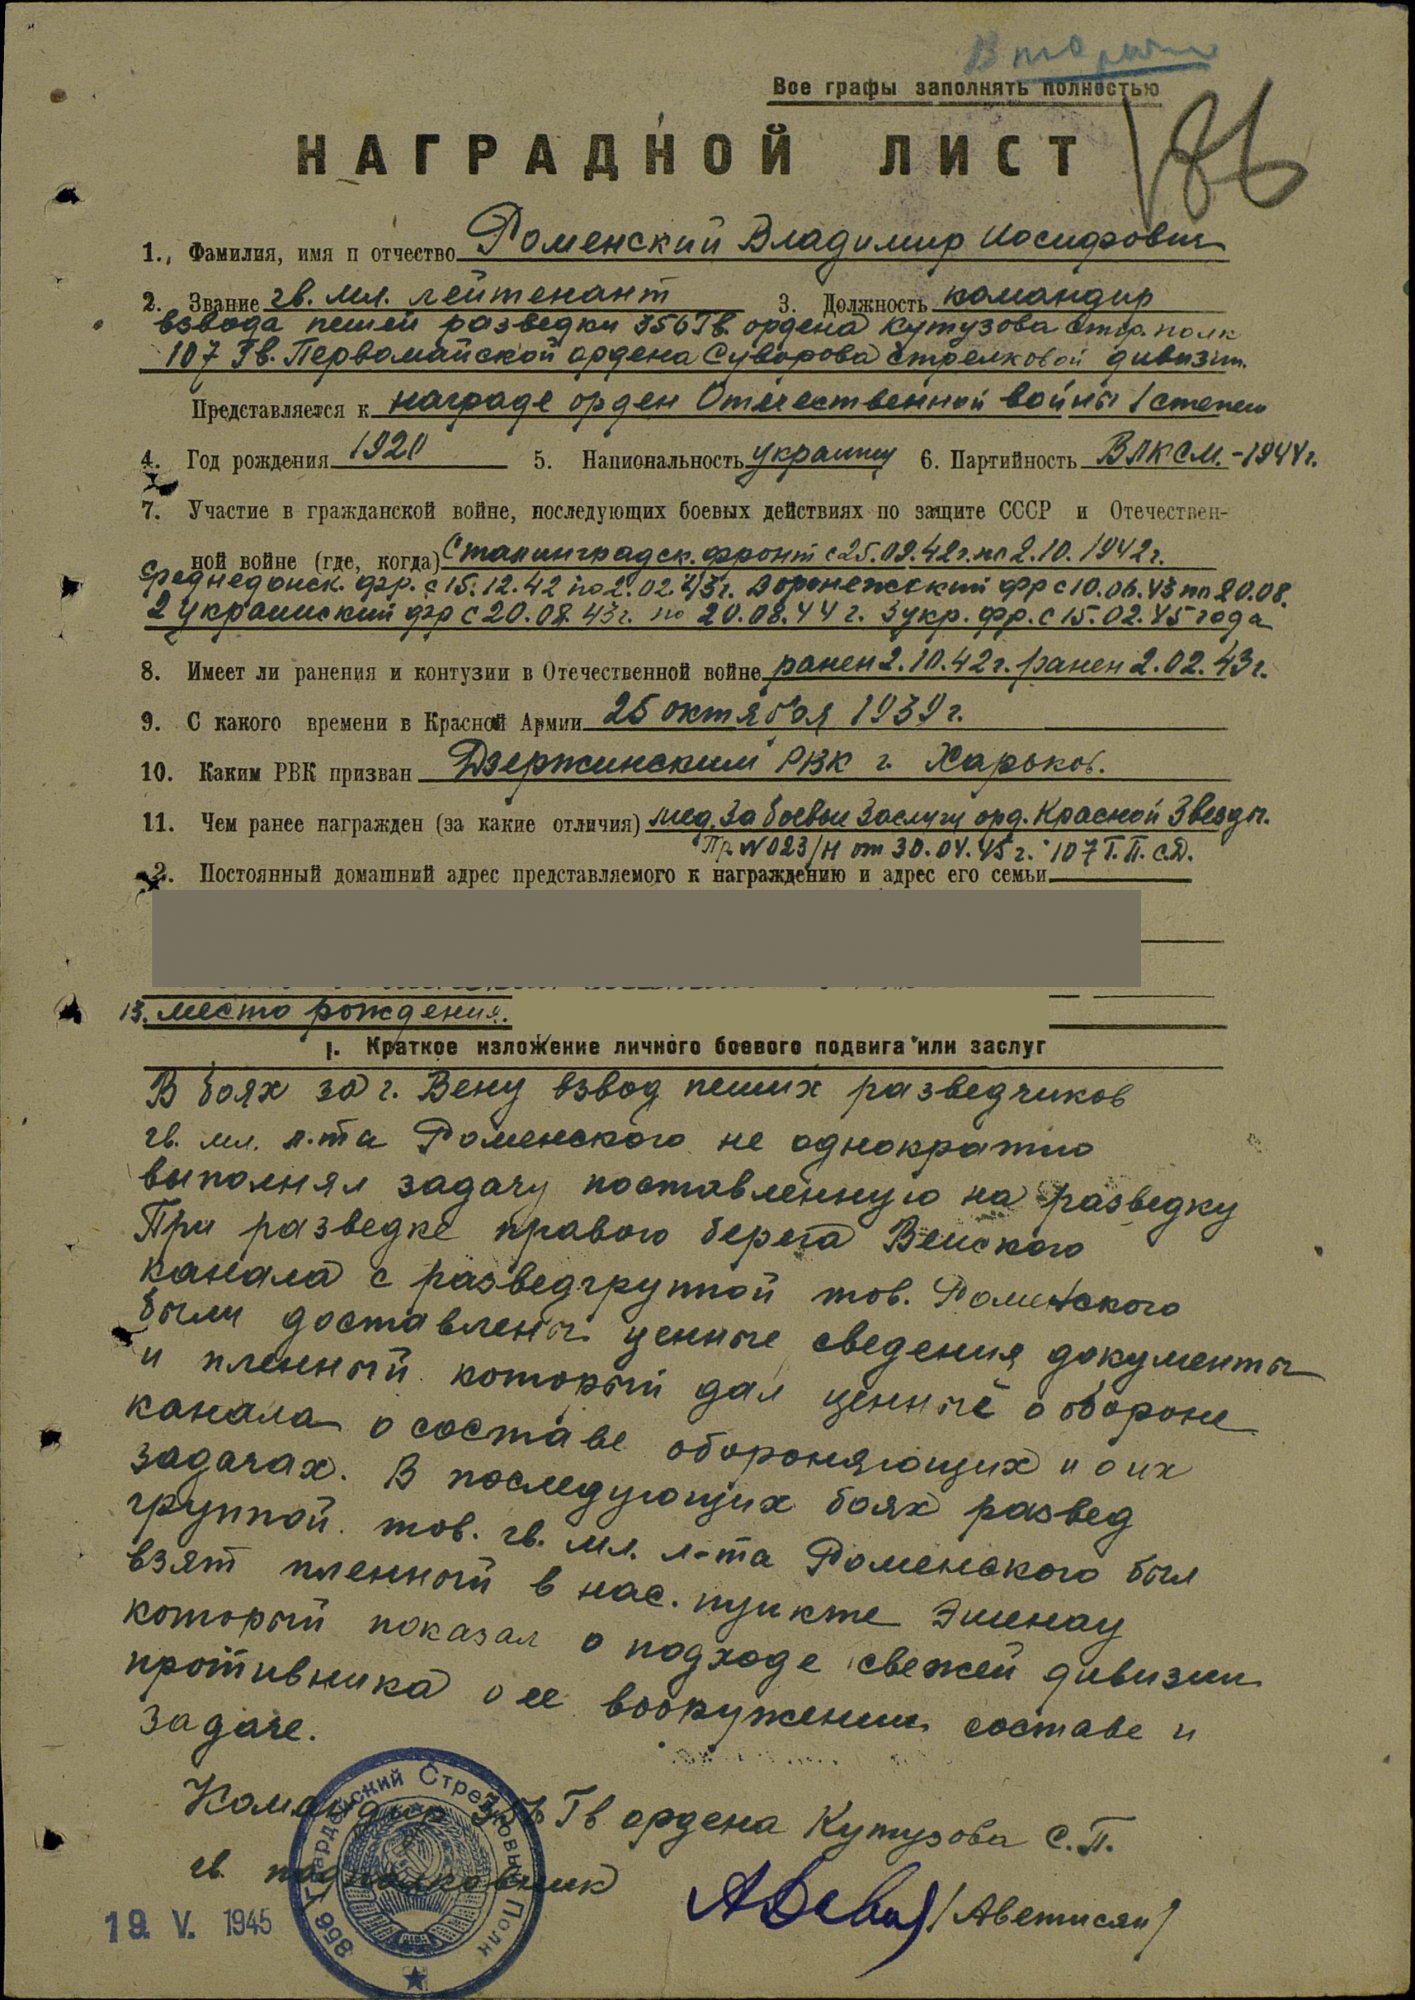 Вторично
Все графы заполнять полностью
186
НАГРАДНОЙ ЛИСТ
1. Фамилия, имя п отчество Роменский Владимир Иосифович
2. Звание гв. мл. лейтенант 3. Должность командир
взвода пешей разведки 356 Гв. ордена Кутузова стр. полк
107 Гв. Первомайской ордена Суворова стрелковой дивизии.
Представляется к награде орден Отечественной войны 1 степен
4. Год рождения 1920 5. Национальность украинец 6. Партийность ВЛКСМ.-1944г.
7. Участие в гражданской войне, последующих боевых действиях по защите СССР и Отечествен-
ной войне (где, когда) Сталинградск. фронт с 25.09.42г. по 2.10.1942г.
Среднедонск. фр. с 15.12.42 по 2.02.43г. Воронежский фр с 10.06.43 по 20.08.
2 украинский фр с 20.08.43г. по 20.08.44 г. 3 укр. фр. с 15.02.45 года
8. Имеет ли ранения и контузии в Отечественной войне ранен 2.10.42г. ранен 2.02.43г.
9. С какого времени в Красной Армии 25 октября 1939г.
10. Каким РВК призван Дзержинским РВК г. Харьков.
11. Чем ранее награжден (за какие отличия) мед. За боевые заслуги орд. Красной Звезды.
Пр. N 023/н от 30.04.45г. 107 Г.П.С.Д.
2. Постоянный домашний адрес представляемого к награждению и адрес его семьи
13. место рождения.
1. Краткое изложение личного боевого подвига или заслуг
В боях за г. Вену взвод пеших разведчиков
гв. мл. л-та Роменского не однократно
выполнял задачу поставленную на разведку
При разведке правого берега Венского
канала с разведгруппой тов. Роменского
были доставлены ценные сведения документы
и пленный который дал ценные о обороне
канала о составе обороняющих и о их
задачах. В последующих боях развед
группой тов. гв. мл. л-та Роменского был
взят пленный в нас. пункте Эшенау
который показал о подходе свежей дивизии
противника о ее вооружении составе и
задаче.
Командир 356 Гв ордена Кутузова С.П.
гв. подполковник /Аветисян/
356 Гвардейский Стрелковый Полк
19. V. 1945